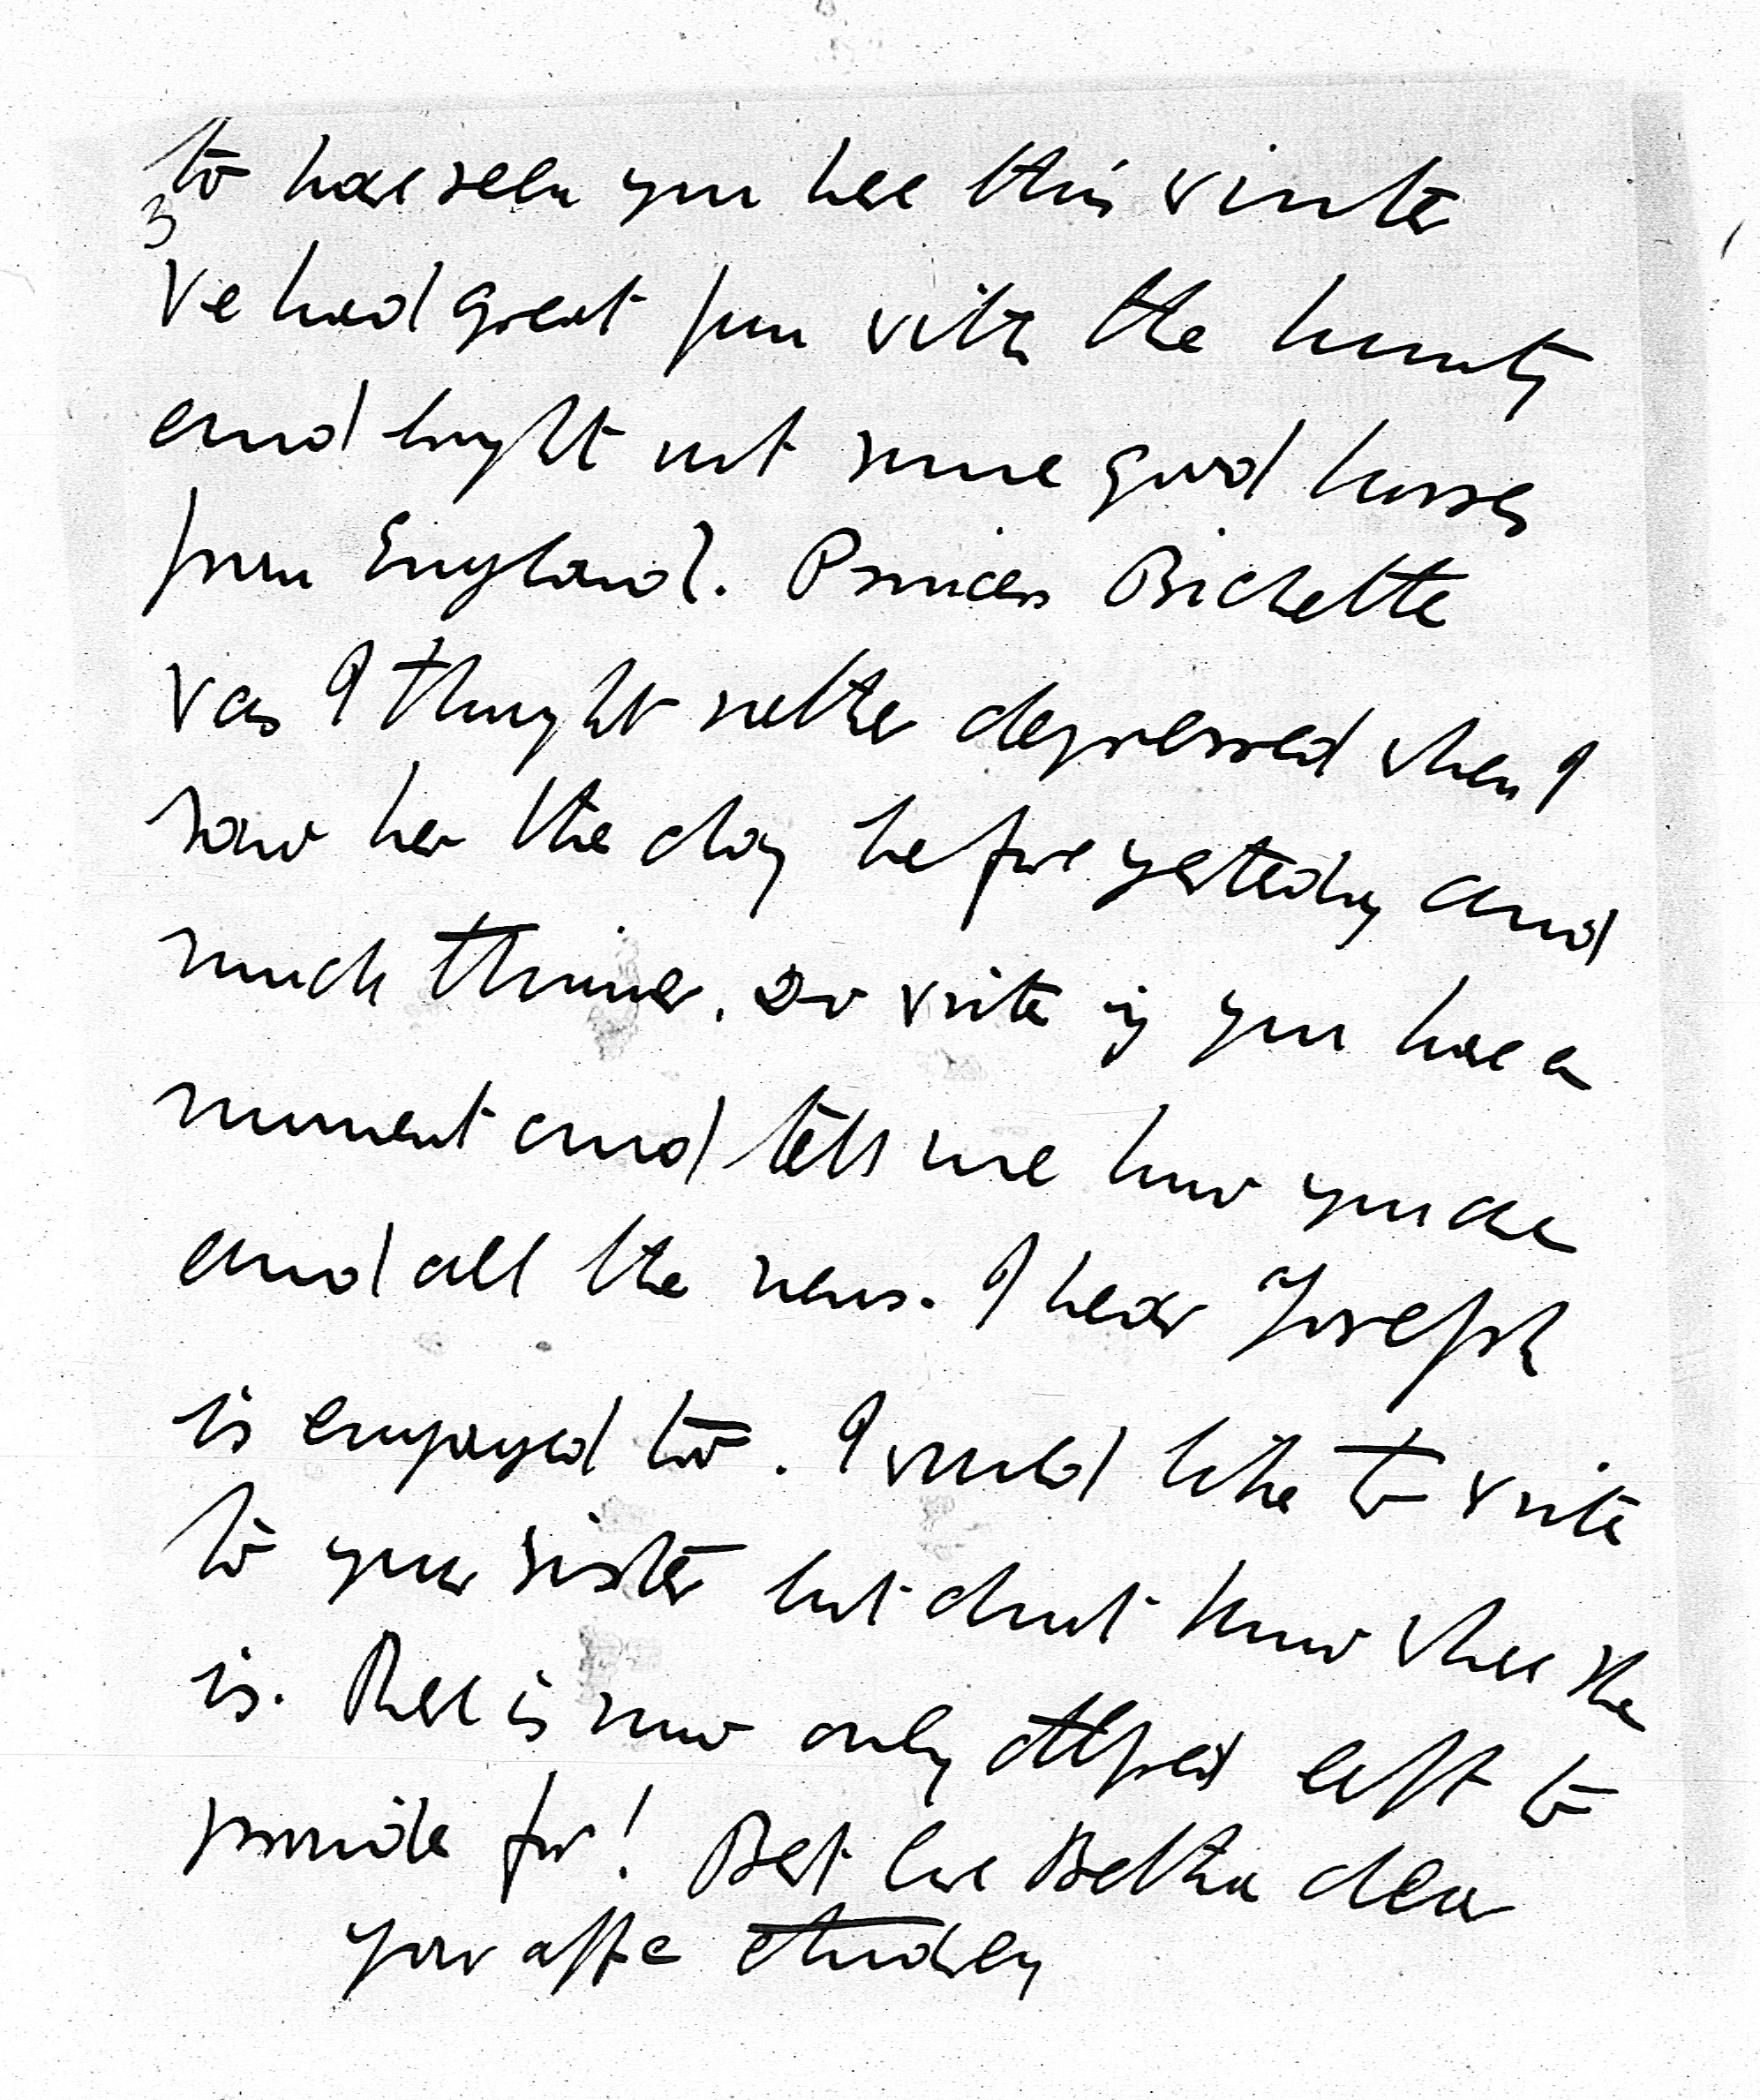 to have seen you here this winter
3
We had great fun with the hunts
and bought out some good horses
from England. Princess Bichette
was I thought rather depressed when I
saw her the day before yesterday and
much thinner. Do write if you have a
moment and tell me how you are
and all the news. I hear Joseph
is engaged too. I would like to write
to your sister but dont know where she
is. There is now only Alfred left to
provide for! Best love Bertha dear
your affte Audrey